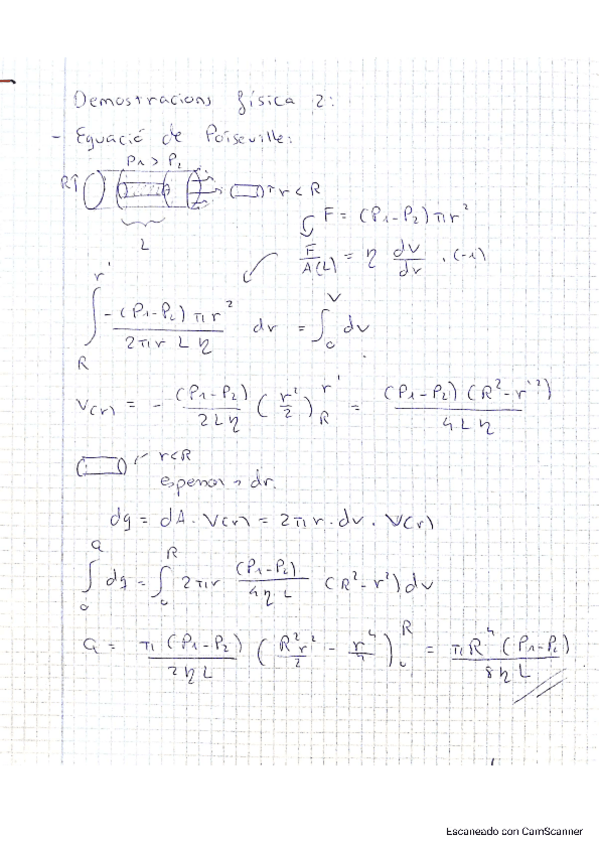 Demostracions física 2:
- Equació de Poiseville:
P1 > P2
R↑ r < R
L
F = (P1-P2) π r²
F/A(L) = η dv/dr · (-1)
∫_R^r' -(P1-P2) π r² / 2π r L η dr = ∫_0^V dv
V(r) = - (P1-P2)/2Lη (r²/2)_R^r' = (P1-P2)(R²-r'²)/4Lη
r<R
espesor → dr.
dq = dA · V(r) = 2π r · dr · V(r)
∫_0^Q dq = ∫_0^R 2π r (P1-P2)/4ηL (R²-r²) dr
Q = π(P1-P2)/2ηL (R²r²/2 - r⁴/4)_0^R = πR⁴(P1-P2)/8ηL
Escaneado con CamScanner